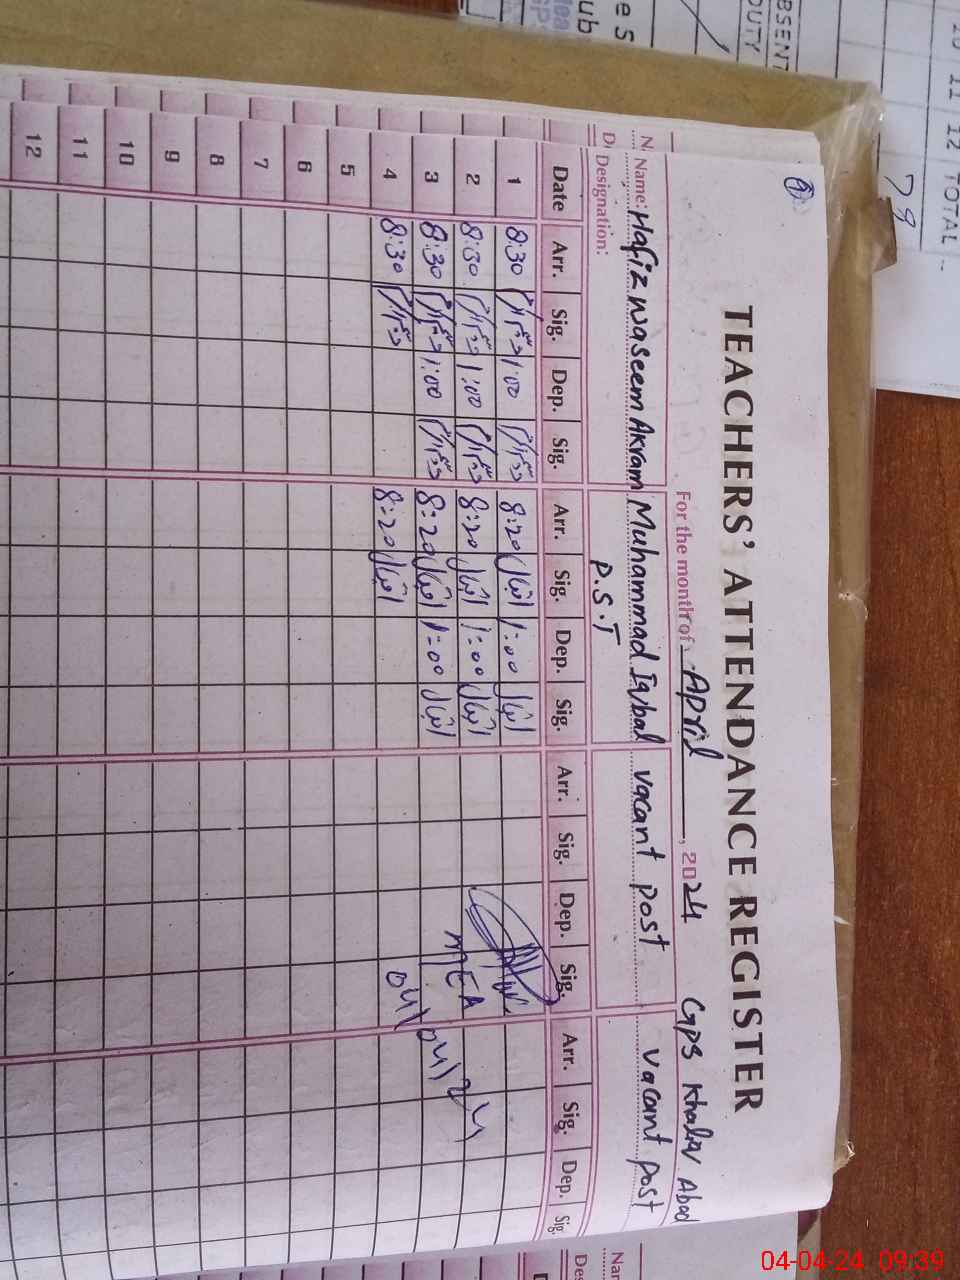 TEACHERS' ATTENDANCE REGISTER
For the month of April, 2024 GPS Khaliq Abad
Name: Hafiz Waseem Akram Muhammad Iqbal Vacant Post Vacant Post
Designation: P.S.T
Date Arr. Sig. Dep. Sig. Arr. Sig. Dep. Sig. Arr. Sig. Dep. Sig. Arr. Sig. Dep. Sig.
1 8:30 1:00 8:20 اقبال 1:00 اقبال
2 8:30 1:00 8:20 اقبال 1:00 اقبال MEA
3 8:30 1:00 8:20 اقبال 1:00 اقبال 04/04/24
4 8:30 8:20 اقبال
5
6
7
8
9
10
11
12
78
10 11 12 TOTAL
04-04-24 09:39